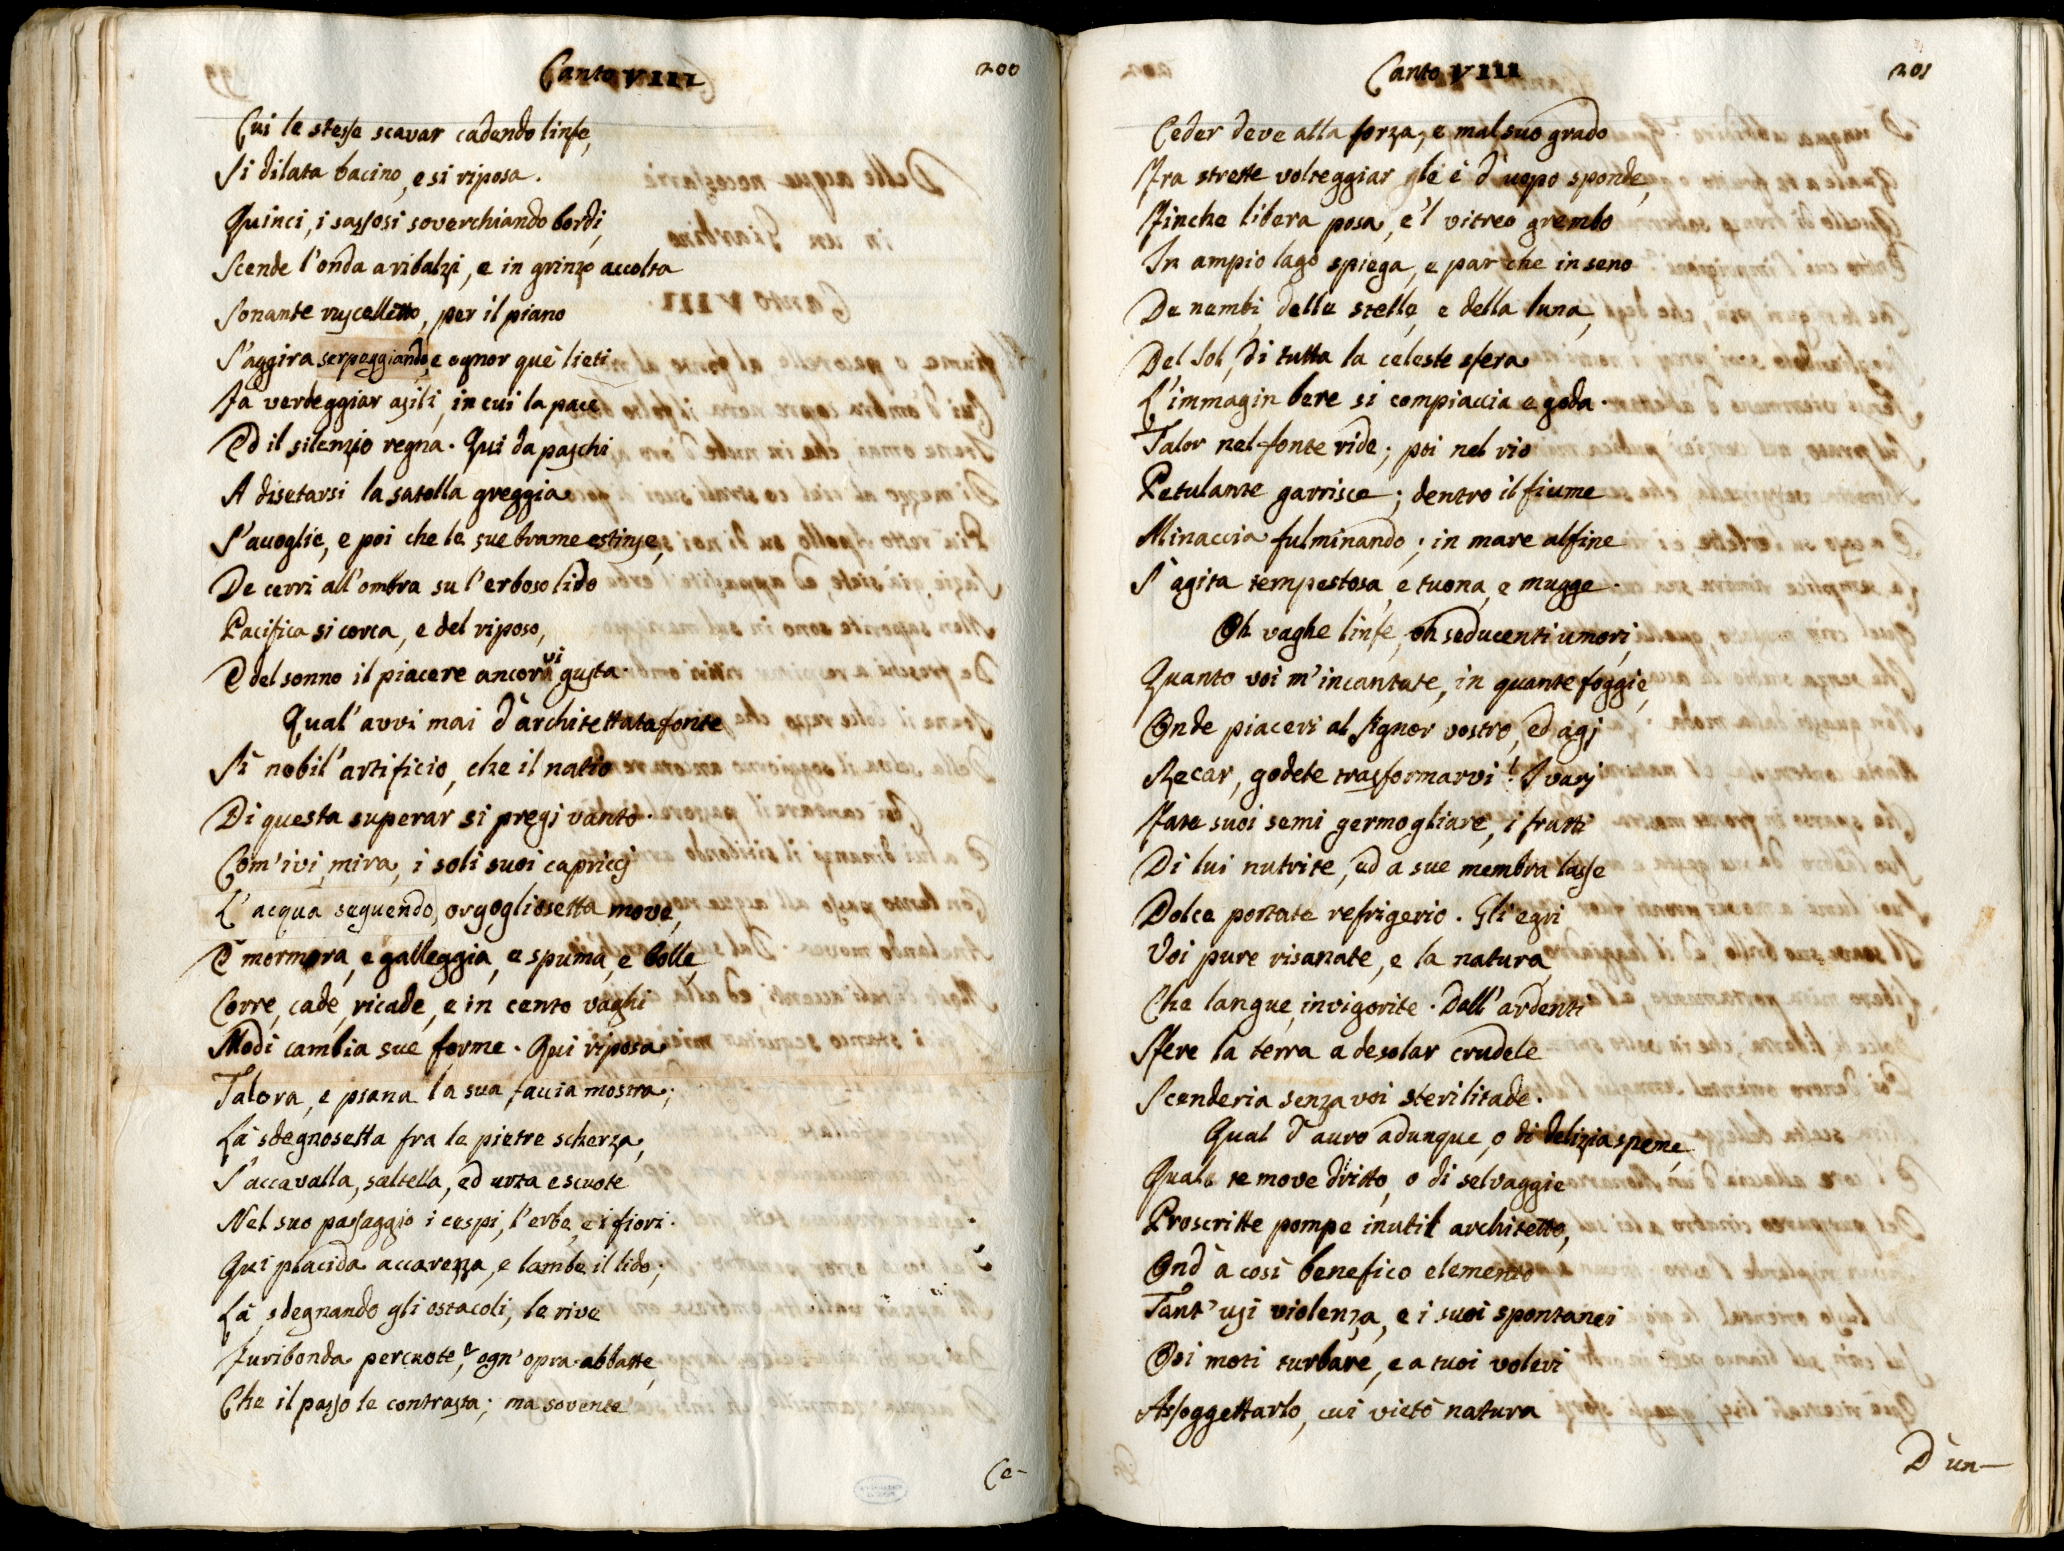 Canto VIII
200
Cui le stesse scavar cadendo linfe,
Si dilata bacino, e si riposa.
Quinci, i sassosi soverchiando bordi,
Scende l'onda a ribalzi, e in grinze accolta
Sonante ruscelletto, per il piano
S'aggira serpeggiando, e ognor què lieti
Fà verdeggiar asili, in cui la pace
Ed il silenzio regna. Qui da paschi
A disetarsi la satolla greggia
S'avoglie, e poi che le sue brame estinse,
De cerri all'ombra su l'erboso lido
Pacifica si corca, e del riposo,
E del sonno il piacere ancor vi gusta.
Qual' avvi mai d'architettata fonte
Sì nobil' artificio, che il natio
Di questa superar si pregi vanto.
Com' ivi, mira, i soli suoi capriccj
L' acqua seguendo, orgogliosetta move,
E mormora, e galleggia, e spuma, e bolle,
Corre, cade, ricade, e in cento vaghi
Modi cambia sue forme. Qui riposa
Talora, e piana la sua faccia mostra;
Là sdegnosetta fra le pietre scherza,
S'accavalla, saltella, ed urta e scuote
Nel suo passaggio i cespi, l'erbe, e i fiori.
Qui placida accarezza, e lambe il lido;
Là, sdegnando gli ostacoli, le rive
Furibonda percuote, e ogn' opra abbatte,
Che il passo le contrasta; ma sovente
Ce-
Canto VIII
201
Ceder deve alla forza, e mal suo grado
Fra strette volteggiar gli è d'uopo sponde,
Finche libera posa, e'l vitreo grembo
In ampio lago spiega, e par che in seno
De nembi, delle stelle, e della luna,
Del Sol, di tutta la celeste sfera
L'immagin bere si compiaccia e goda.
Talor nel fonte ride; poi nel rio
Petulante garrisce; dentro il fiume
Minaccia fulminando; in mare alfine
S'agita tempestosa, e tuona, e mugge.
Oh vaghe linfe, oh seducenti umori,
Quanto voi m'incantate, in quante foggie,
Onde piaceri al Signor vostro, ed agj
Recar, godete trasformarvi! I varj
Fate suoi semi germogliare, i frutti
Di lui nutrite, ed a sue membra lasse
Dolce portate refrigerio. Gli egri
Voi pure risanate, e la natura,
Che langue, invigorite. Dall' ardenti
Sfere la terra a desolar crudele
Scenderia senza voi sterilitade.
Qual d'auro adunque, o di delizia speme,
Quale te move dritto, o di selvaggie
Proscritte pompe inutil architetto,
Ond' à così benefico elemento
Tant' usi violenza, e i suoi spontanei
Osi moti turbare, e a tuoi voleri
Assoggettarlo, cui vietò natura
D'un-